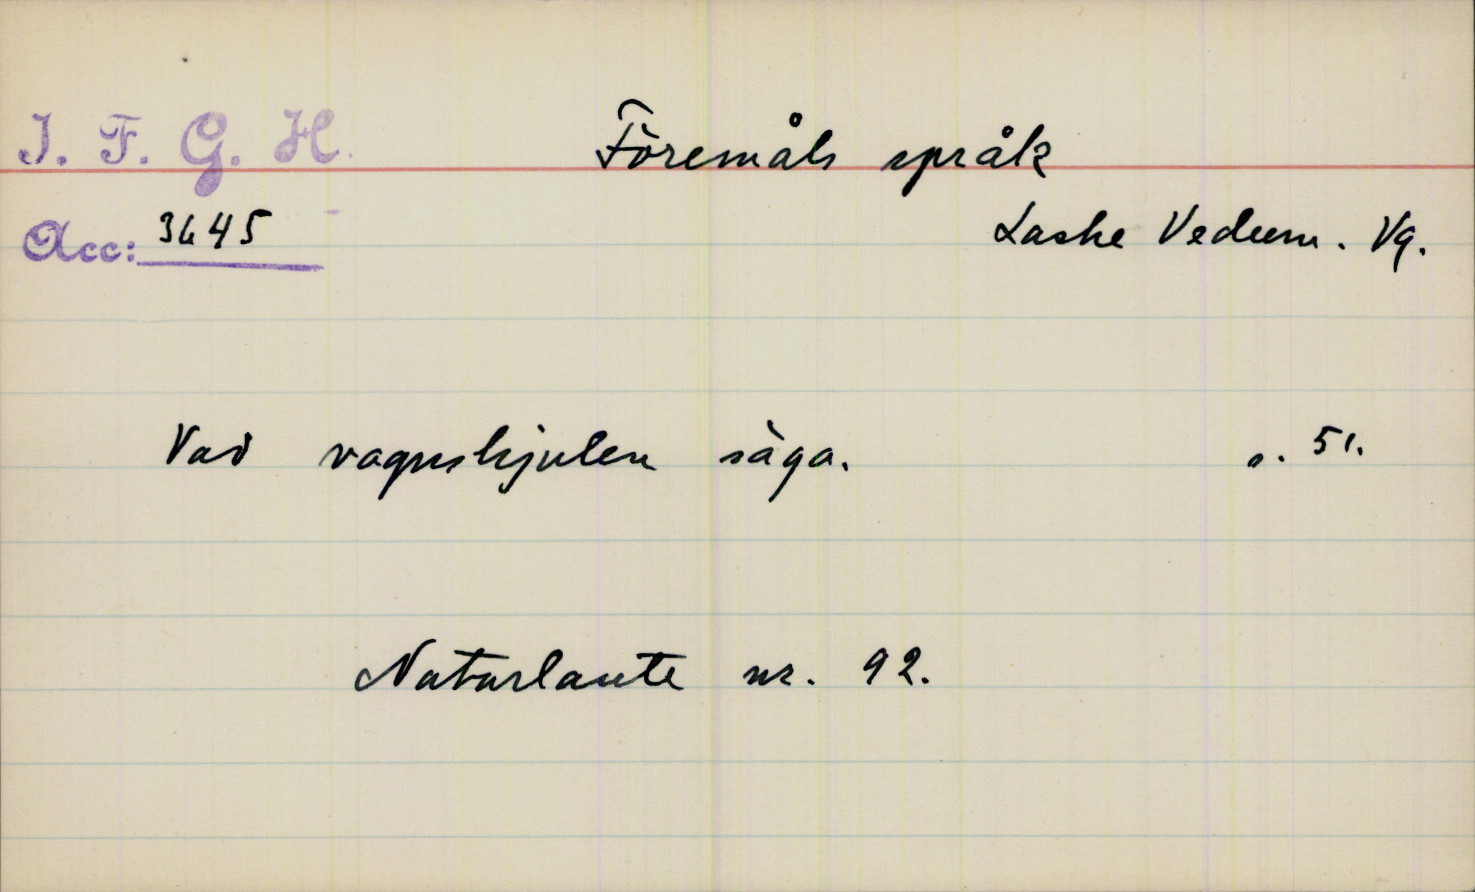 I. F. G. H. Föremåls språk
Acc: 3645 Laske Vedum. Vg.
Vad vagnshjulen säga. s. 51.
Naturlaute nr. 92.